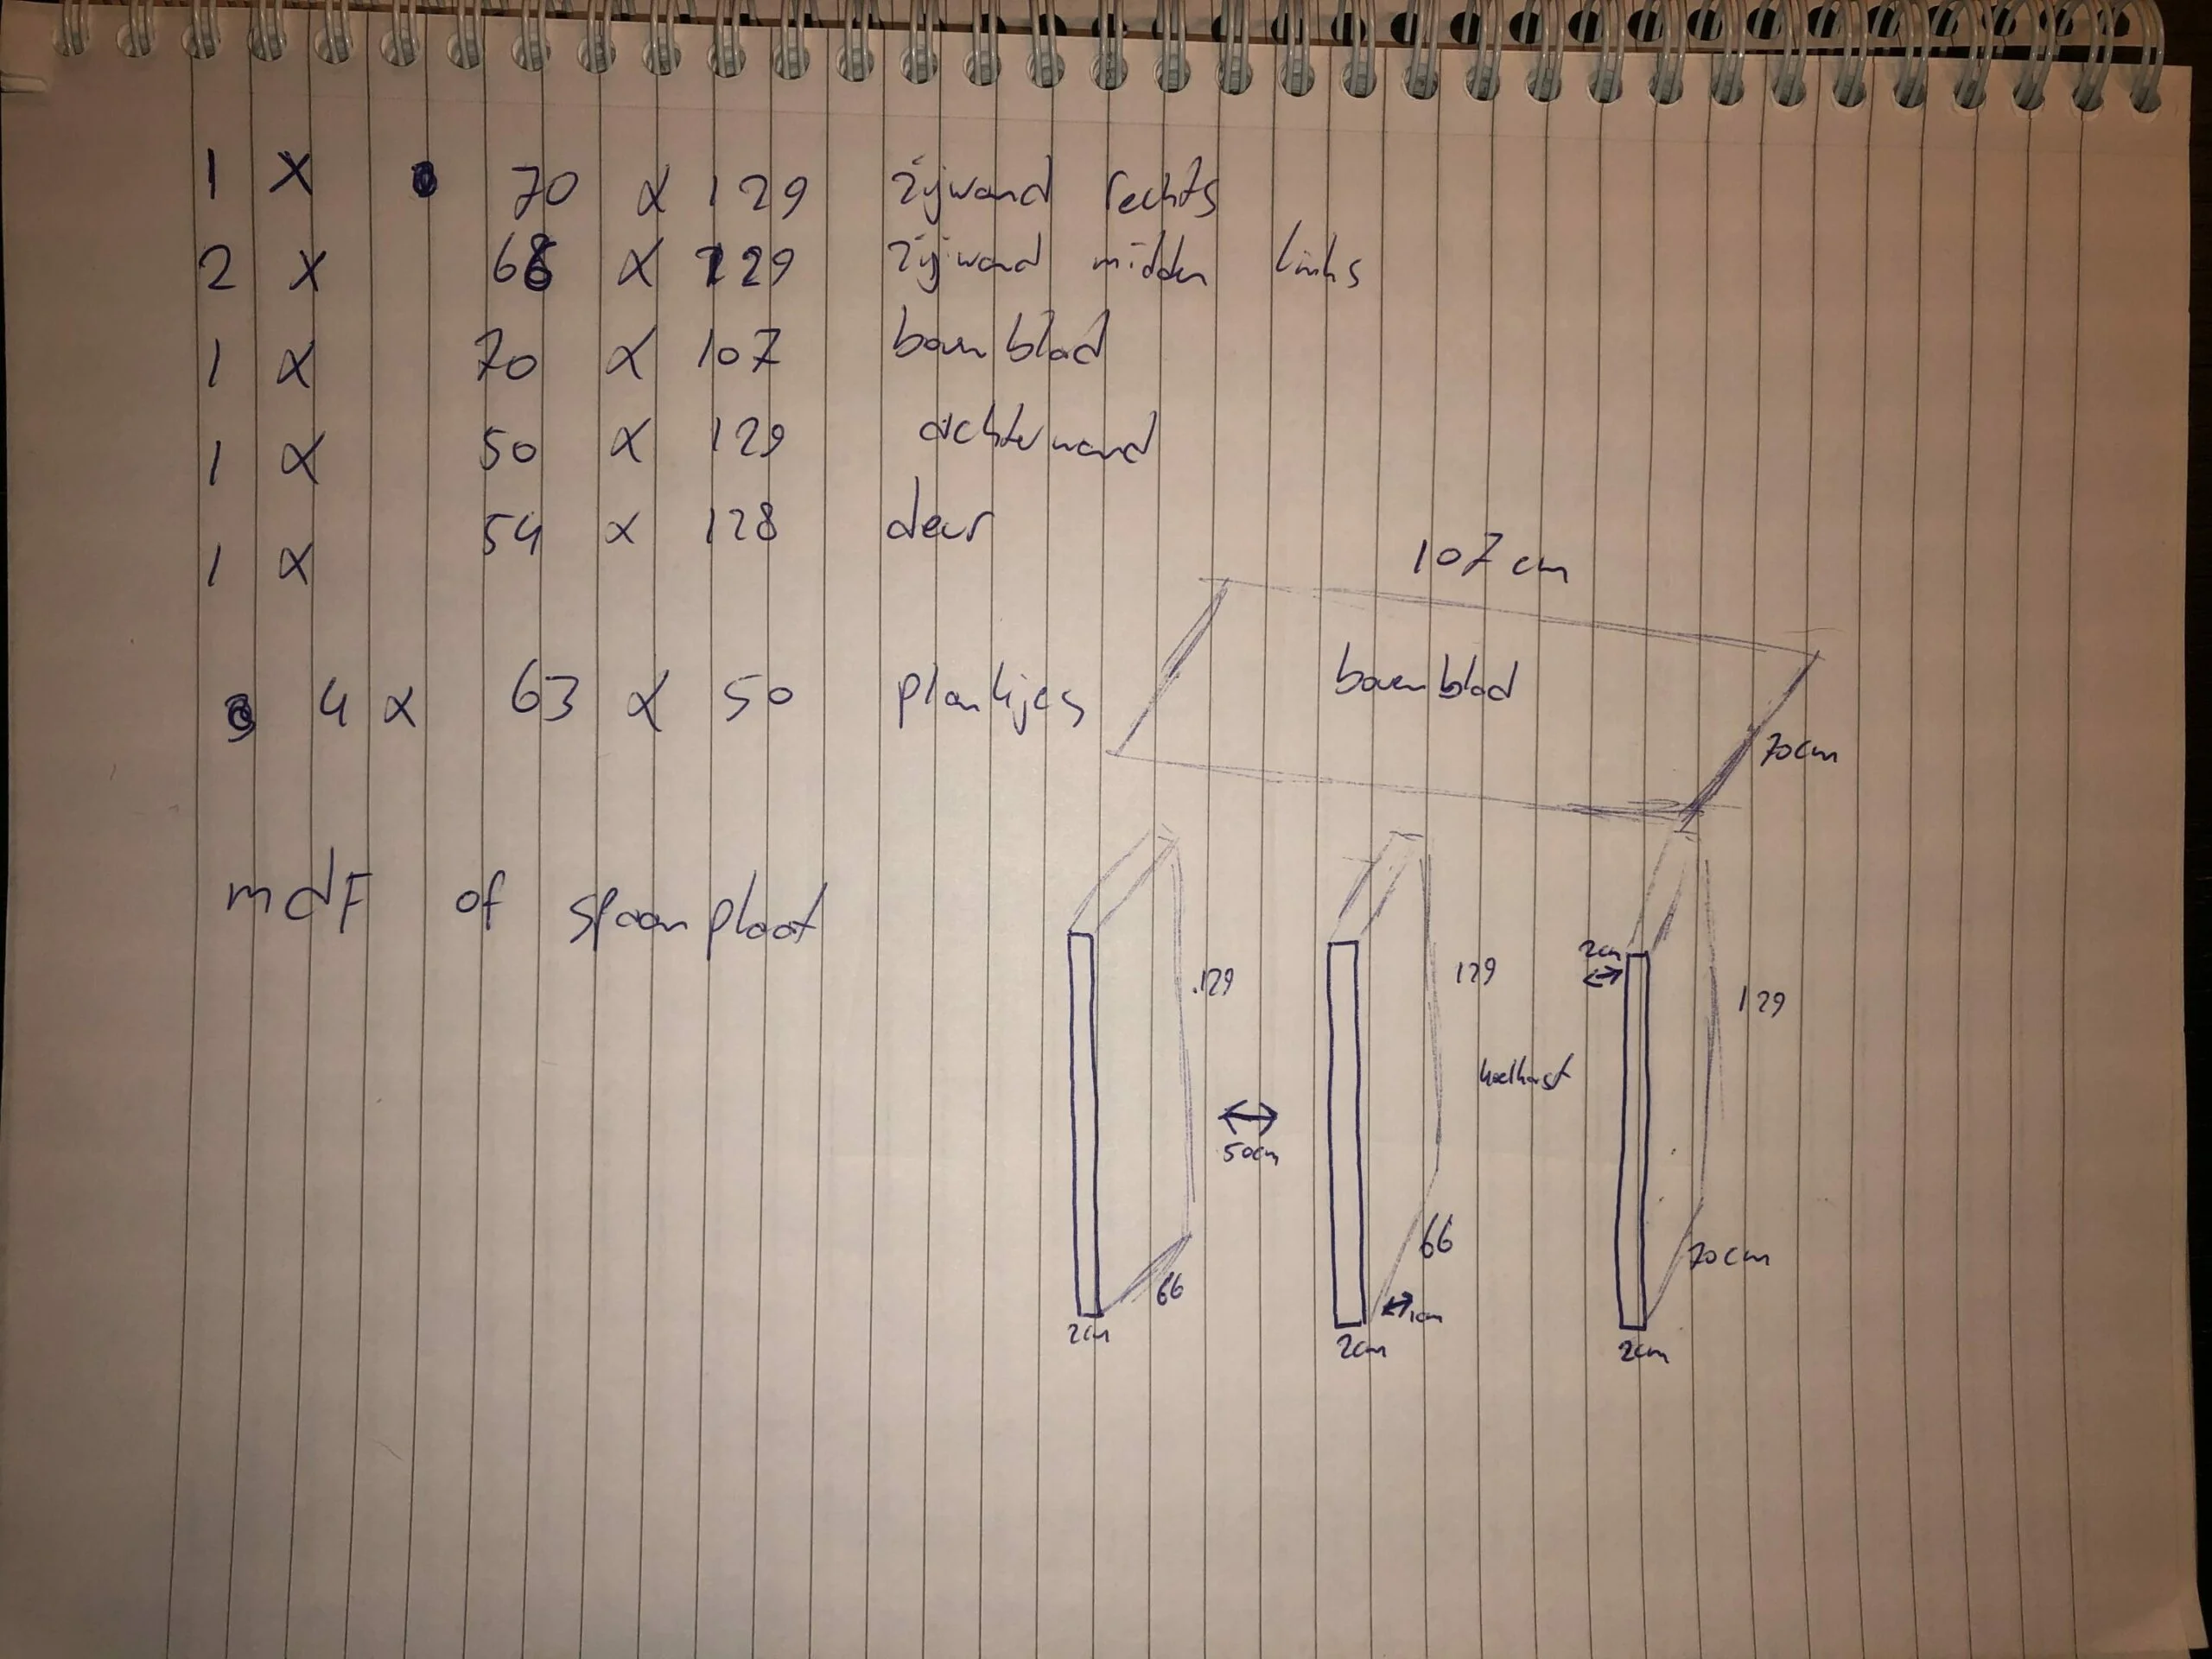 1 x 70 x 129 zijwand rechts
2 x 66 x 129 zijwand midden links
1 x 70 x 107 bovenblad
1 x 50 x 129 achterwand
1 x 54 x 128 deur
4 x 63 x 50 plankjes
mdF of spaanplaat
107 cm
bovenblad
70cm
129
129
2cm
129
koelkast
50cm
66
66
70cm
1cm
2cm
2cm
2cm